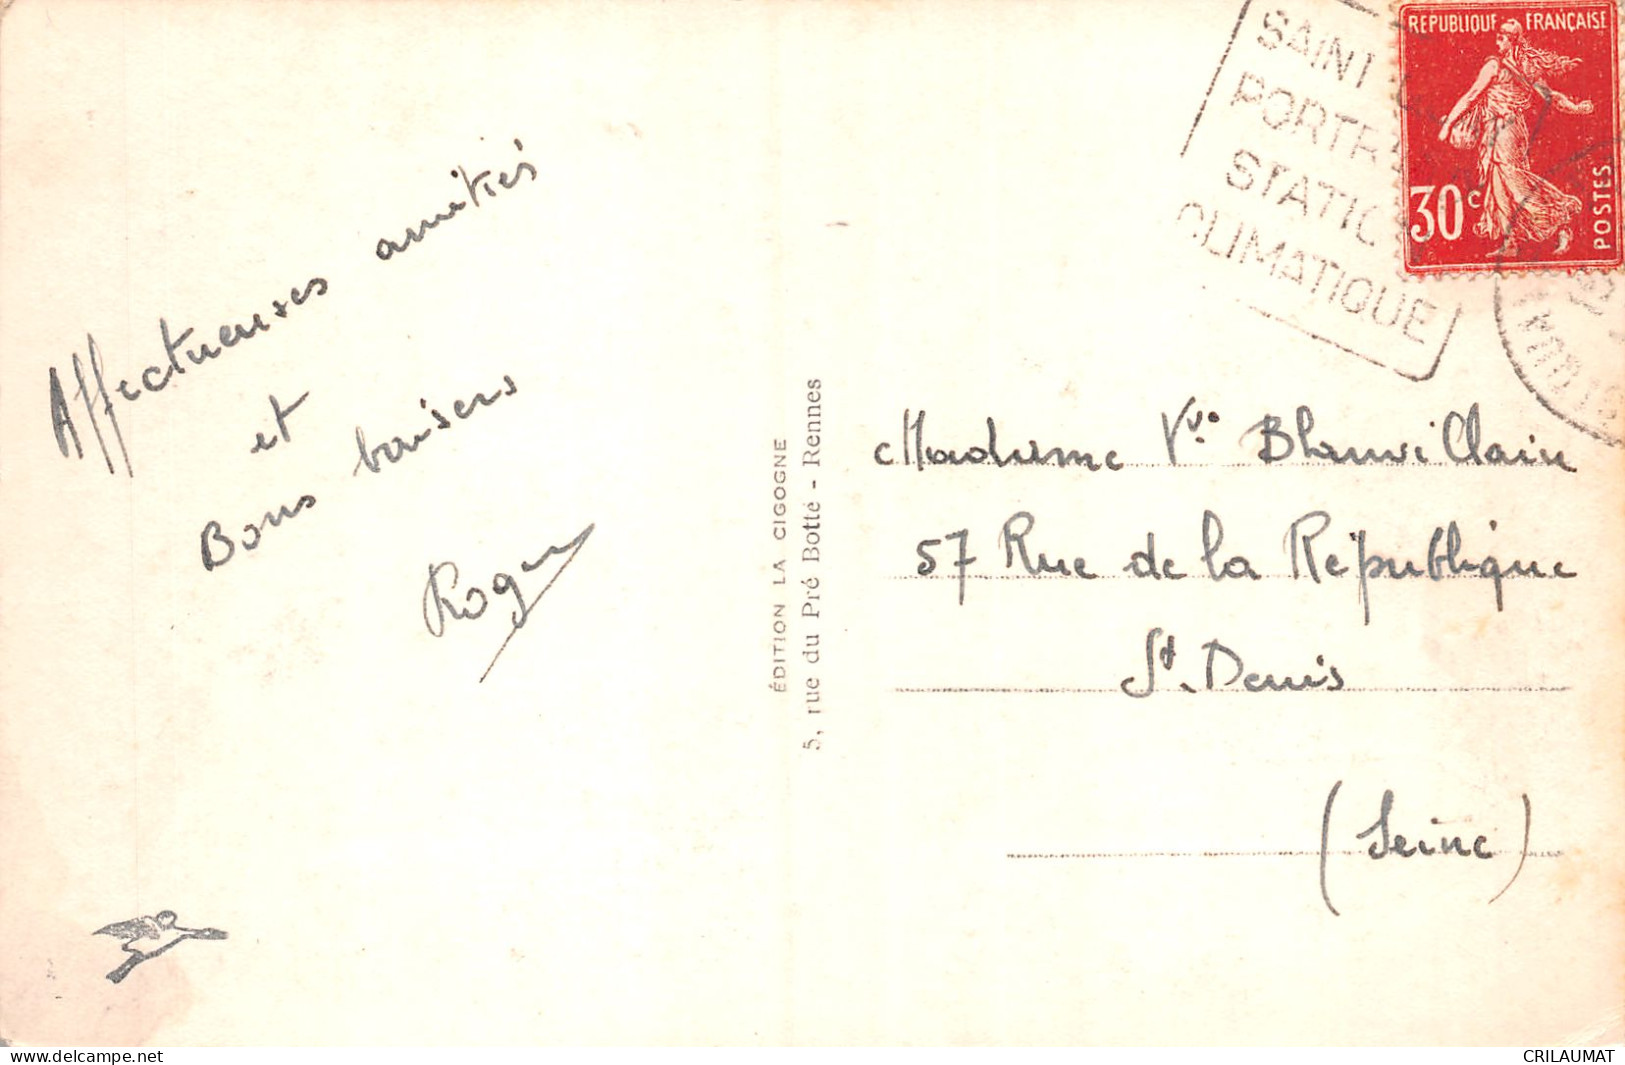 Affectueuses amitiés
et
Bons baisers
Roger
ÉDITION LA CIGOGNE
5, rue du Pré Botté - Rennes
SAINT
CLIMATIQUE
REPUBLIQUE FRANÇAISE
30c
POSTES
Madame Vve Blanvillain
57 Rue de la République
St. Denis
(Seine)
www.delcampe.net
CRILAUMAT